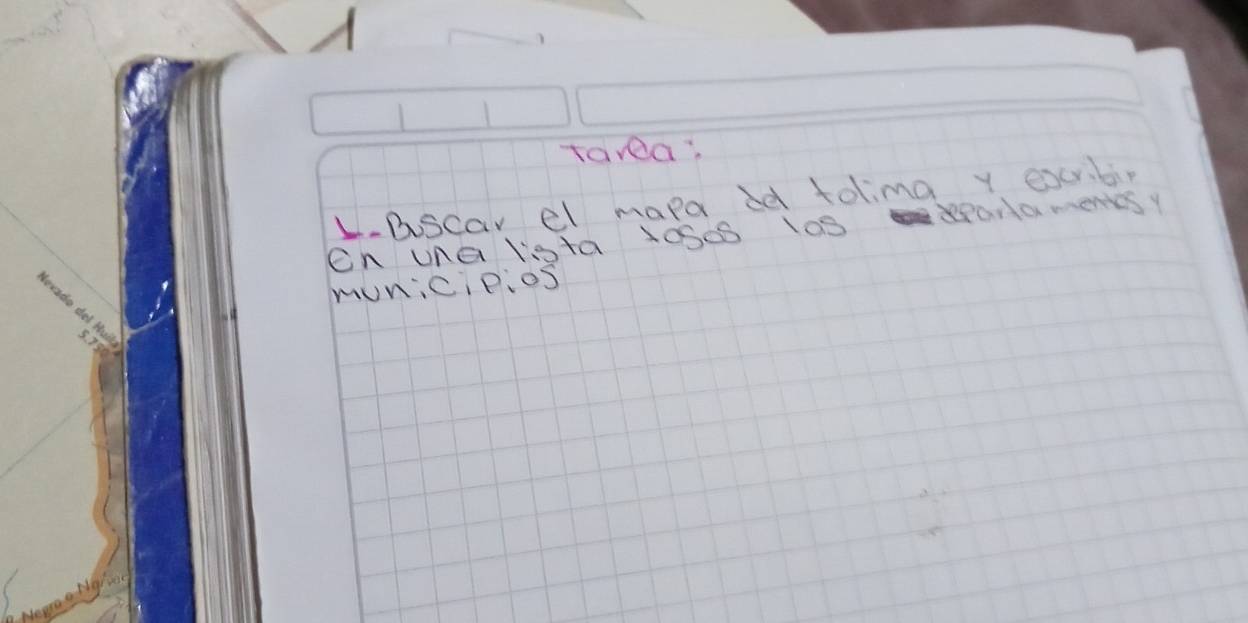 Tarea:
1.- Buscar el mapa del tolima y escribir
en una lista todos los departamentos y
municipios
Nevado del Huila
5.75
Negro o